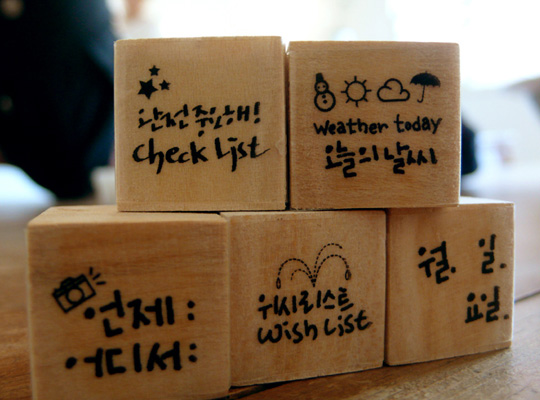 완전중요해!
Check List
Weather today
오늘의 날씨
언제:
어디서:
위시리스트
Wish List
월. 일.
요일.